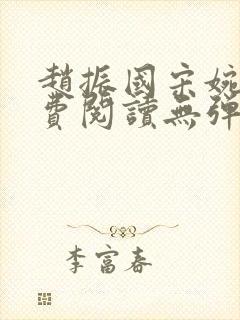 趙振國宋婉
費閱讀無彈
李富春